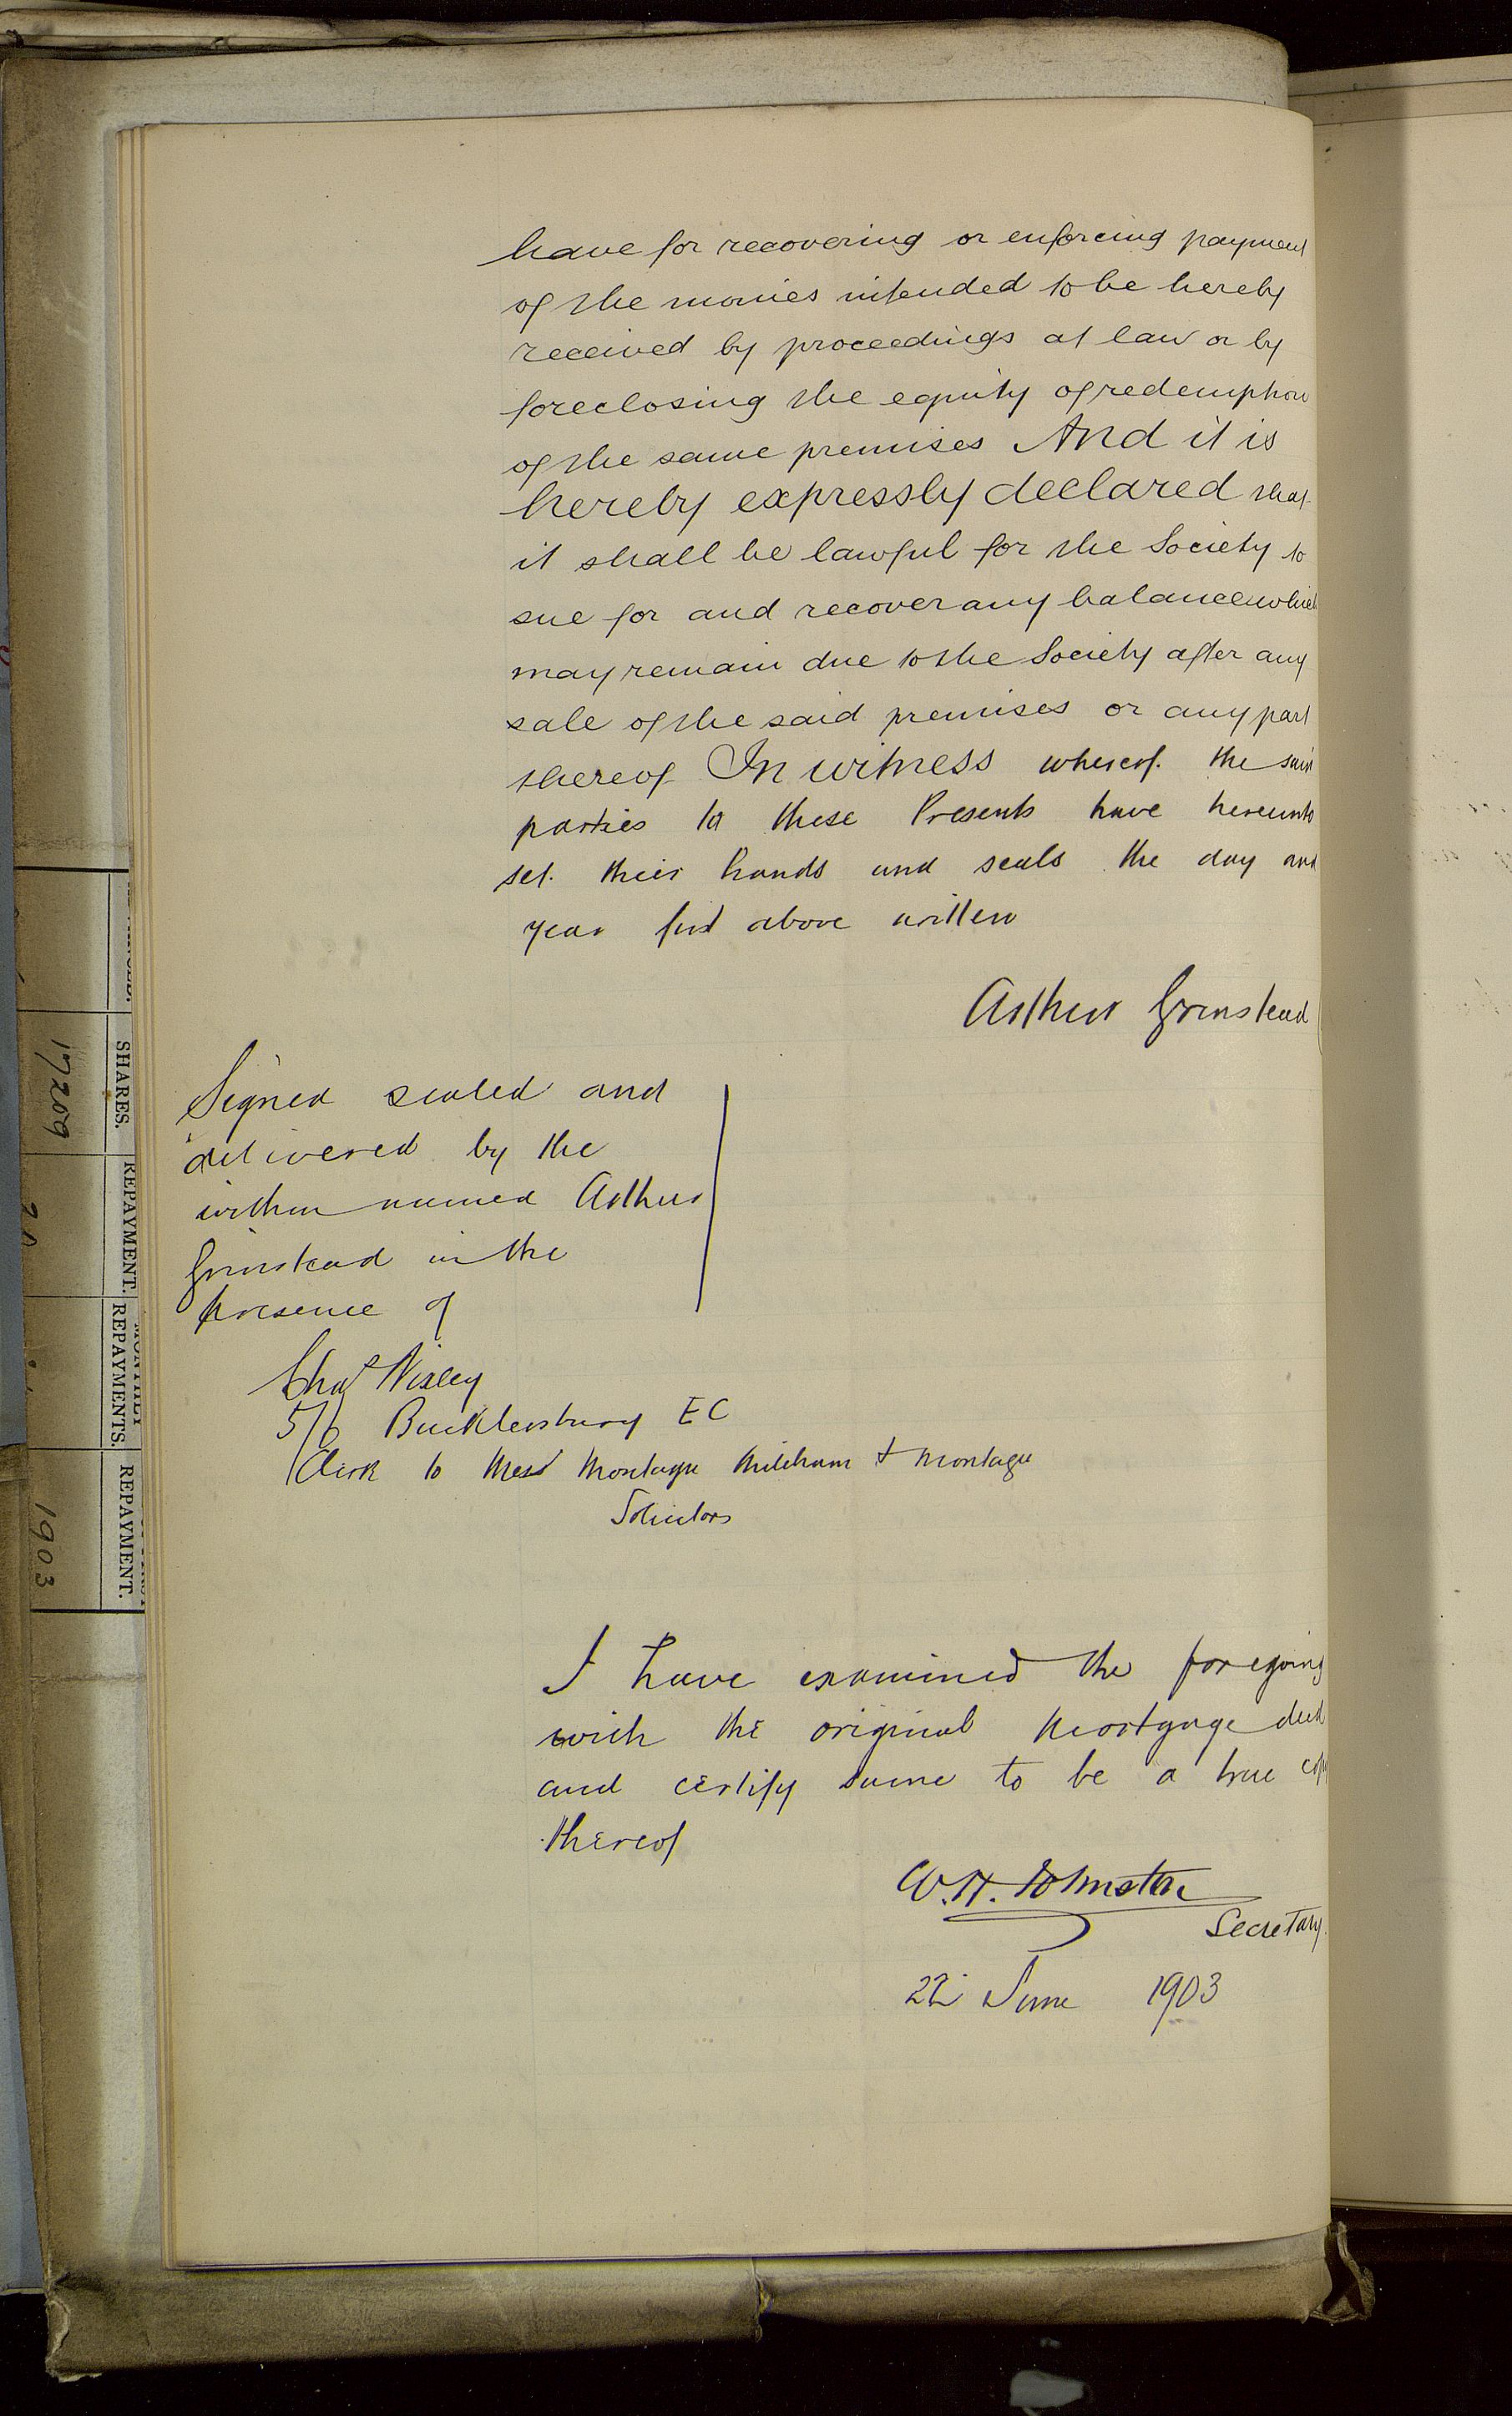 have for recovering or enforcing payment
of the monies intended to be hereby
received by proceedings at law or by
foreclosing the equity of redemption
of the same premises And it is
hereby expressly declared that
it shall be lawful for the Society to
sue for and recover any balance which
may remain due to the Society after any
sale of the said premises or any part
thereof In witness whereof the said
parties to these Presents have hereunto
set their hands and seals the day and
year first above written
Arthur Grinstead
Signed sealed and
delivered by the
within named Arthur
Grinstead in the
presence of
Chas Nixley
5/6 Bucklersbury EC
Clerk to Mess Montagu Mileham & Montagu
Solicitors
I have examined the foregoing
with the original Mortgage deed
and certify same to be a true copy
thereof
W.H. Johnston
Secretary.
22 June 1903
SHARES.
17209
REPAYMENT.
REPAYMENTS.
REPAYMENT.
1903